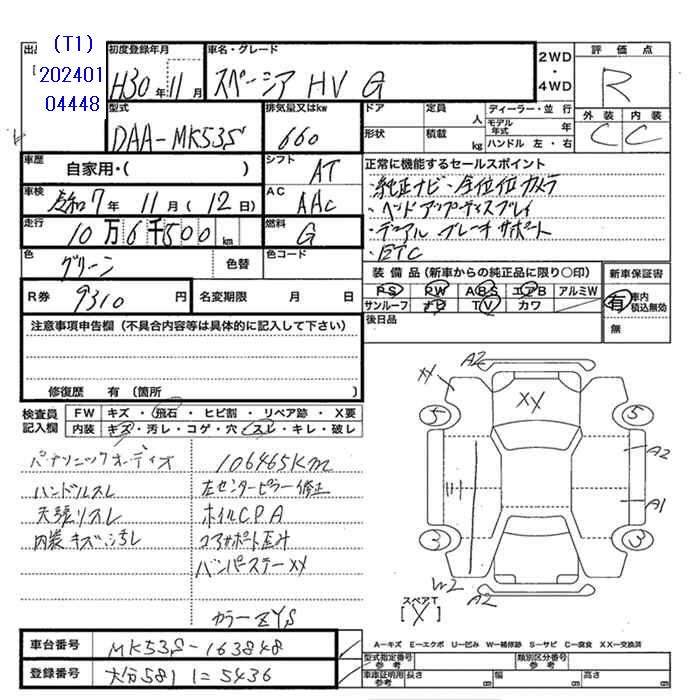 (T1)
202401
04448
初度登録年月
H30年11月
車名・グレード
スペーシア HV G
2WD
・
4WD
評価点
R
型式
DAA-MK53S
排気量又はkw
660
ドア
定員
人
ディーラー・並行
形状
積載
kg
モデル年式
年
ハンドル 左・右
外装
内装
C C
車歴
自家用・( )
シフト
AT
正常に機能するセールスポイント
・純正ナビ・全方位カメラ
・ヘッドアップディスプレイ
・デュアルブレーキサポート
・ETC
車検
令和7年 11月(12日)
AC
AAC
走行
10万6千500km
燃料
G
色
グリーン
色替
色コード
装備品(新車からの純正品に限り○印)
新車保証書
PS PW ABS エアB アルミW
サンルーフ ナビ TV カワ
有
車内積込無効
無
R券
9310円
名変期限 月 日
後日品
注意事項申告欄(不具合内容等は具体的に記入して下さい)
修復歴 有(箇所 )
検査員
記入欄
FW キズ・飛石・ヒビ割・リペア跡・X要
内装 キズ・汚レ・コゲ・穴・スレ・キレ・破レ
パナソニックオーディオ
106465km
ハンドルスレ
左センターピラー修正
天張リスレ
ホイルC.P.A
内装キズ、汚レ
コアサポート歪ミ
バンパーステーXX
カラーZYS
A2
XX
XX
5
5
A2
A1
3
3
W2
A2
スペアT
[X]
車台番号
MK53S-163848
登録番号
大分581 に5436
A-キズ E-エクボ U-凹み W-補修跡 S-サビ C-腐食 XX-交換済
型式指定番号
参考
類別区分番号
参考
車庫証明用
参考
長さ
cm
幅
cm
高さ
cm